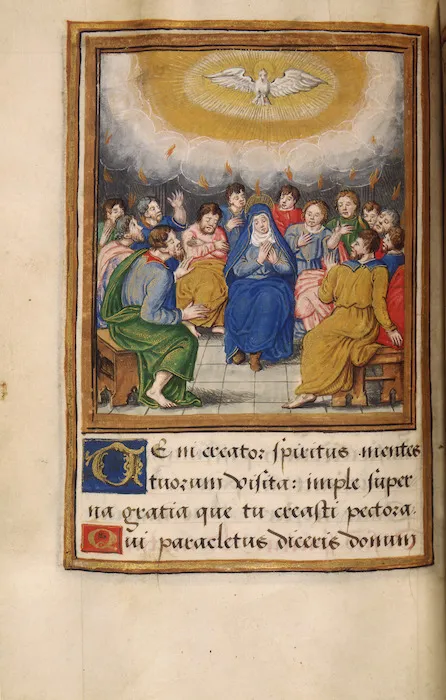 Veni creator spiritus mentes
tuorum visita: imple super
na gratia que tu creasti pectora.
Qui paracletus diceris donum